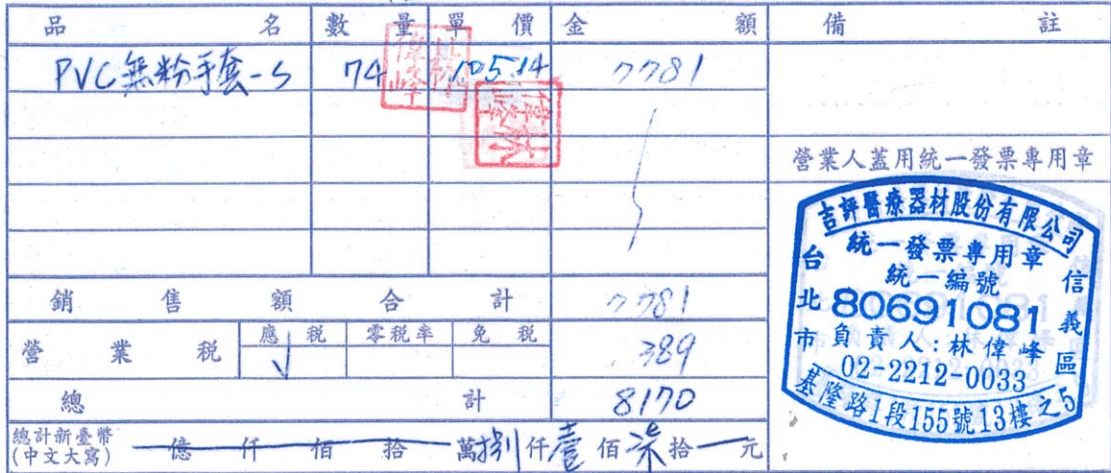 品名 數量 單價 金額 備註
PVC無粉手套-S 74 105.14 7781
營業人蓋用統一發票專用章
吉評醫療器材股份有限公司
統一發票專用章
統一編號
80691081
負責人:林偉峰
02-2212-0033
台北市 信義區
基隆路1段155號13樓之5
銷售額合計 7781
營業稅 應稅 零稅率 免稅 389
總計 8170
總計新臺幣
(中文大寫) 億仟佰拾萬捌仟壹佰柒拾元